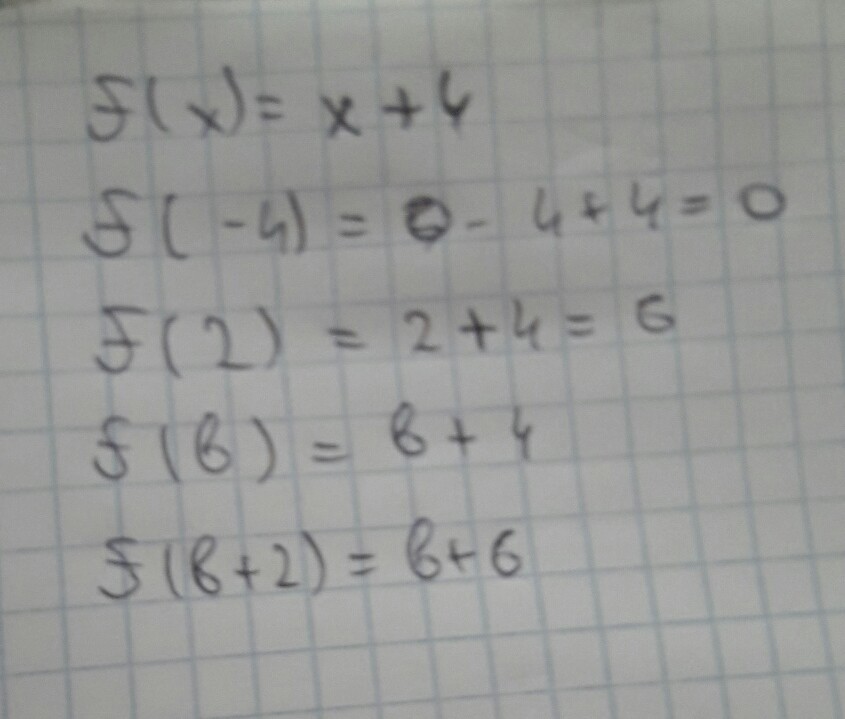 f(x) = x + 4
f(-4) = 0 - 4 + 4 = 0
f(2) = 2 + 4 = 6
f(b) = b + 4
f(b+2) = b+6